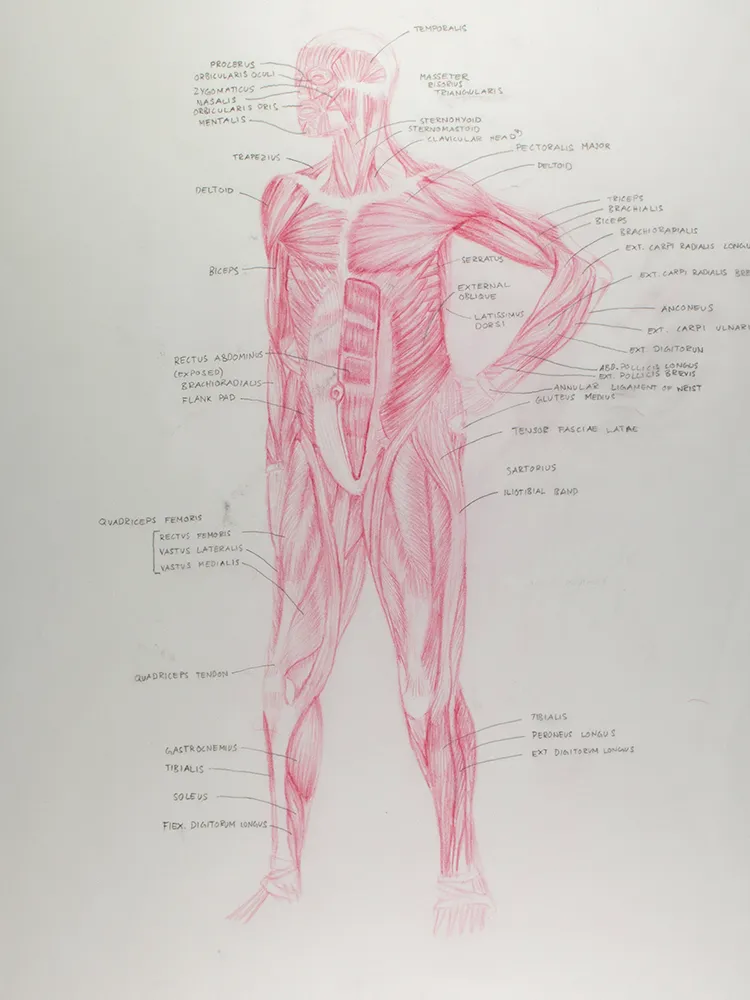 TEMPORALIS
PROCERUS
ORBICULARIS OCULI
ZYGOMATICUS
NASALIS
ORBICULARIS ORIS
MENTALIS
MASSETER
RISORIUS
TRIANGULARIS
STERNOHYOID
STERNOMASTOID
CLAVICULAR HEAD
TRAPEZIUS
PECTORALIS MAJOR
DELTOID
DELTOID
TRICEPS
BRACHIALIS
BICEPS
BRACHIORADIALIS
EXT. CARPI RADIALIS LONGU
BICEPS
SERRATUS
EXT. CARPI RADIALIS BRE
EXTERNAL
OBLIQUE
LATISSIMUS
DORSI
ANCONEUS
EXT. CARPI ULNAR
EXT. DIGITORUM
RECTUS ABDOMINUS
(EXPOSED)
BRACHIORADIALIS
FLANK PAD
ABD. POLLICIS LONGUS
EXT. POLLICIS BREVIS
ANNULAR LIGAMENT OF WRIST
GLUTEUS MEDIUS
TENSOR FASCIAE LATAE
SARTORIUS
ILIOTIBIAL BAND
QUADRICEPS FEMORIS
RECTUS FEMORIS
VASTUS LATERALIS
VASTUS MEDIALIS
QUADRICEPS TENDON
TIBIALIS
PERONEUS LONGUS
EXT DIGITORUM LONGUS
GASTROCNEMIUS
TIBIALIS
SOLEUS
FLEX. DIGITORUM LONGUS